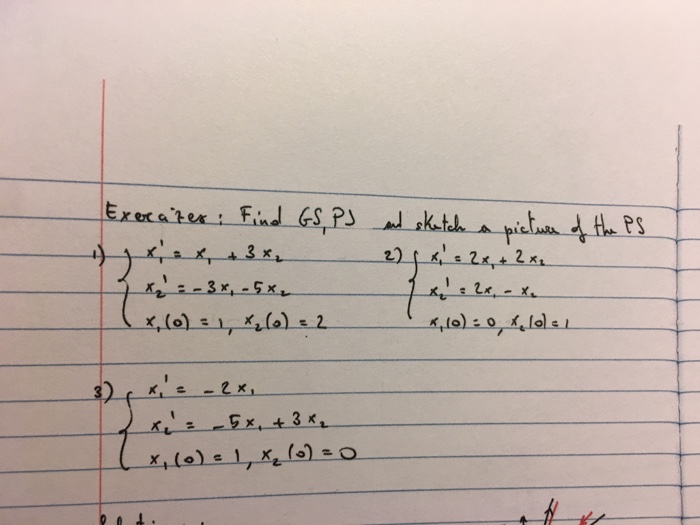 Exercises: Find GS, PS and sketch a picture of the PS
1) { x₁' = x₁ + 3x₂
x₂' = -3x₁ - 5x₂
x₁(0) = 1, x₂(0) = 2
2) { x₁' = 2x₁ + 2x₂
x₂' = 2x₁ - x₂
x₁(0) = 0, x₂(0) = 1
3) { x₁' = -2x₁
x₂' = -5x₁ + 3x₂
x₁(0) = 1, x₂(0) = 0